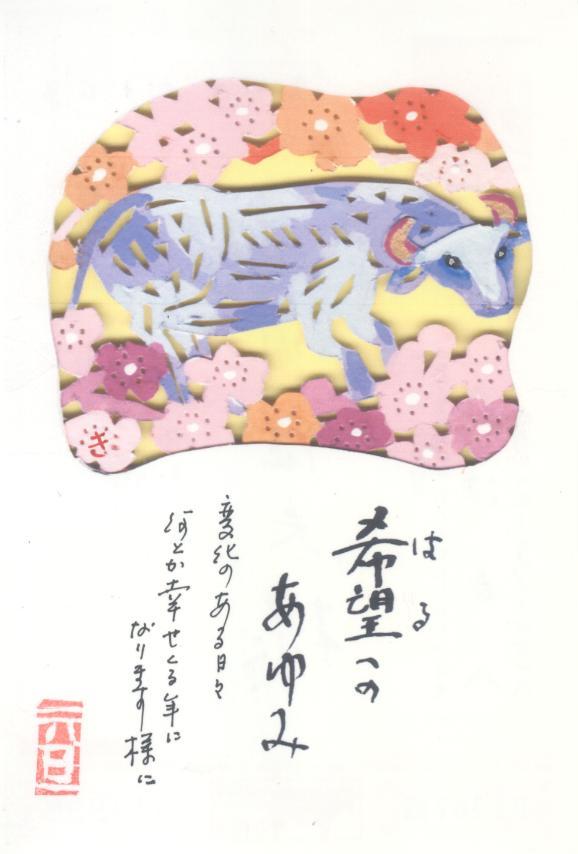 き
はる
希望への
あゆみ
変化のある日々
何とか幸せくる年に
なります様に